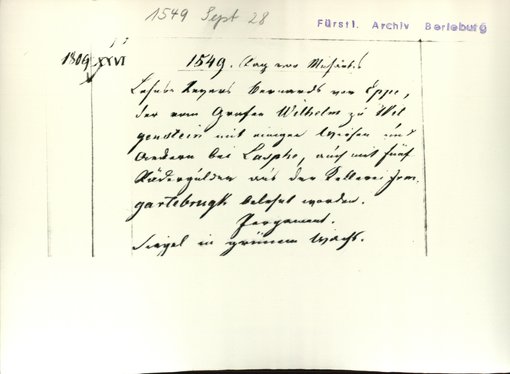 1549 Sept 28
Fürstl. Archiv Berleburg
1809 XXVI 1549. Tag vor Michaelis
Lehns Revers Bernards von Eppe,
der vom Grafen Wilhelm zu Wit
genstein mit einigen Wiesen und
Aeckern bei Lasphe, auch mit fünf
Rädergulden aus der Kellerei Irm
gartebrugk belehnt worden.
Pergament.
Siegel in grünem Wachs.